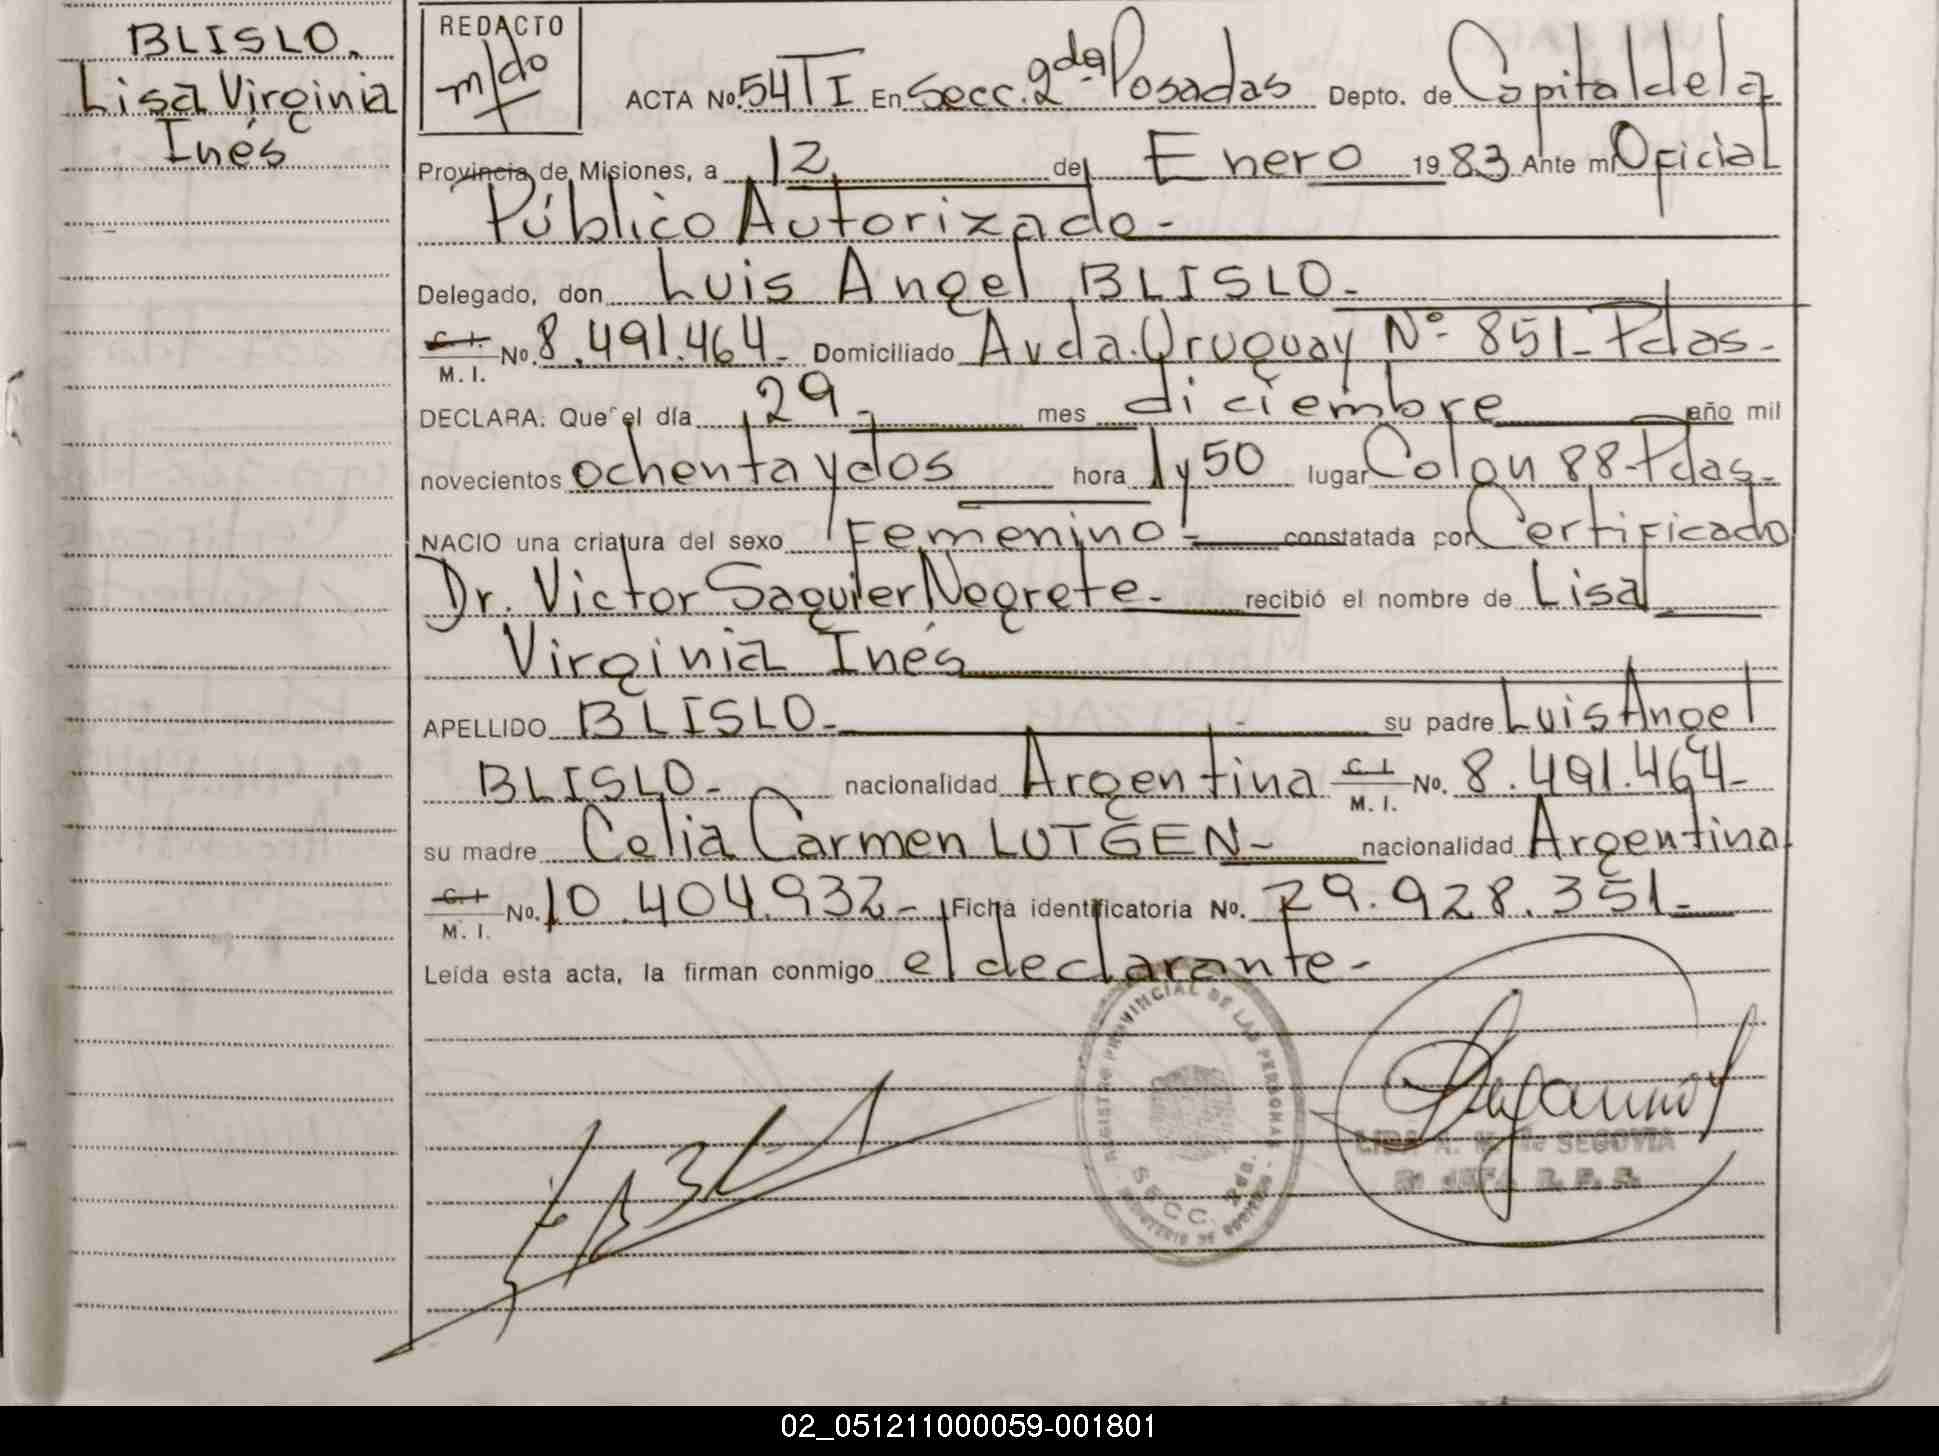 BLISLO.
Lisa Virginia
Inés
REDACTO
m/do
ACTA No. 54 TI En Secc. 2da Posadas Depto. de Capital de la
Provincia de Misiones, a 12 de Enero 1983 Ante mi Oficial
Público Autorizado.-
Delegado, don Luis Angel BLISLO.-
C. I.
M. I. No. 8.491.464.- Domiciliado Avda. Uruguay Nº 851- Pdas.-
DECLARA: Que el día 29.- mes diciembre año mil
novecientos ochenta y dos hora 1 y 50 lugar Colon 88-Pdas.-
NACIO una criatura del sexo Femenino.- constatada por Certificado
Dr. Victor Saguier Negrete.- recibió el nombre de Lisa
Virginia Inés
APELLIDO BLISLO.- su padre Luis Angel
BLISLO.- nacionalidad Argentina C. I.
M. I. No. 8.491.464-
su madre Celia Carmen LUTGEN- nacionalidad Argentina
C. I.
M. I. No. 10.404.932- Ficha identificatoria No. 29.928.351.-
Leída esta acta, la firman conmigo el declarante-
REGISTRO PROVINCIAL DE LAS PERSONAS
SECC. 2da.
SEGOVIA
02_051211000059-001801